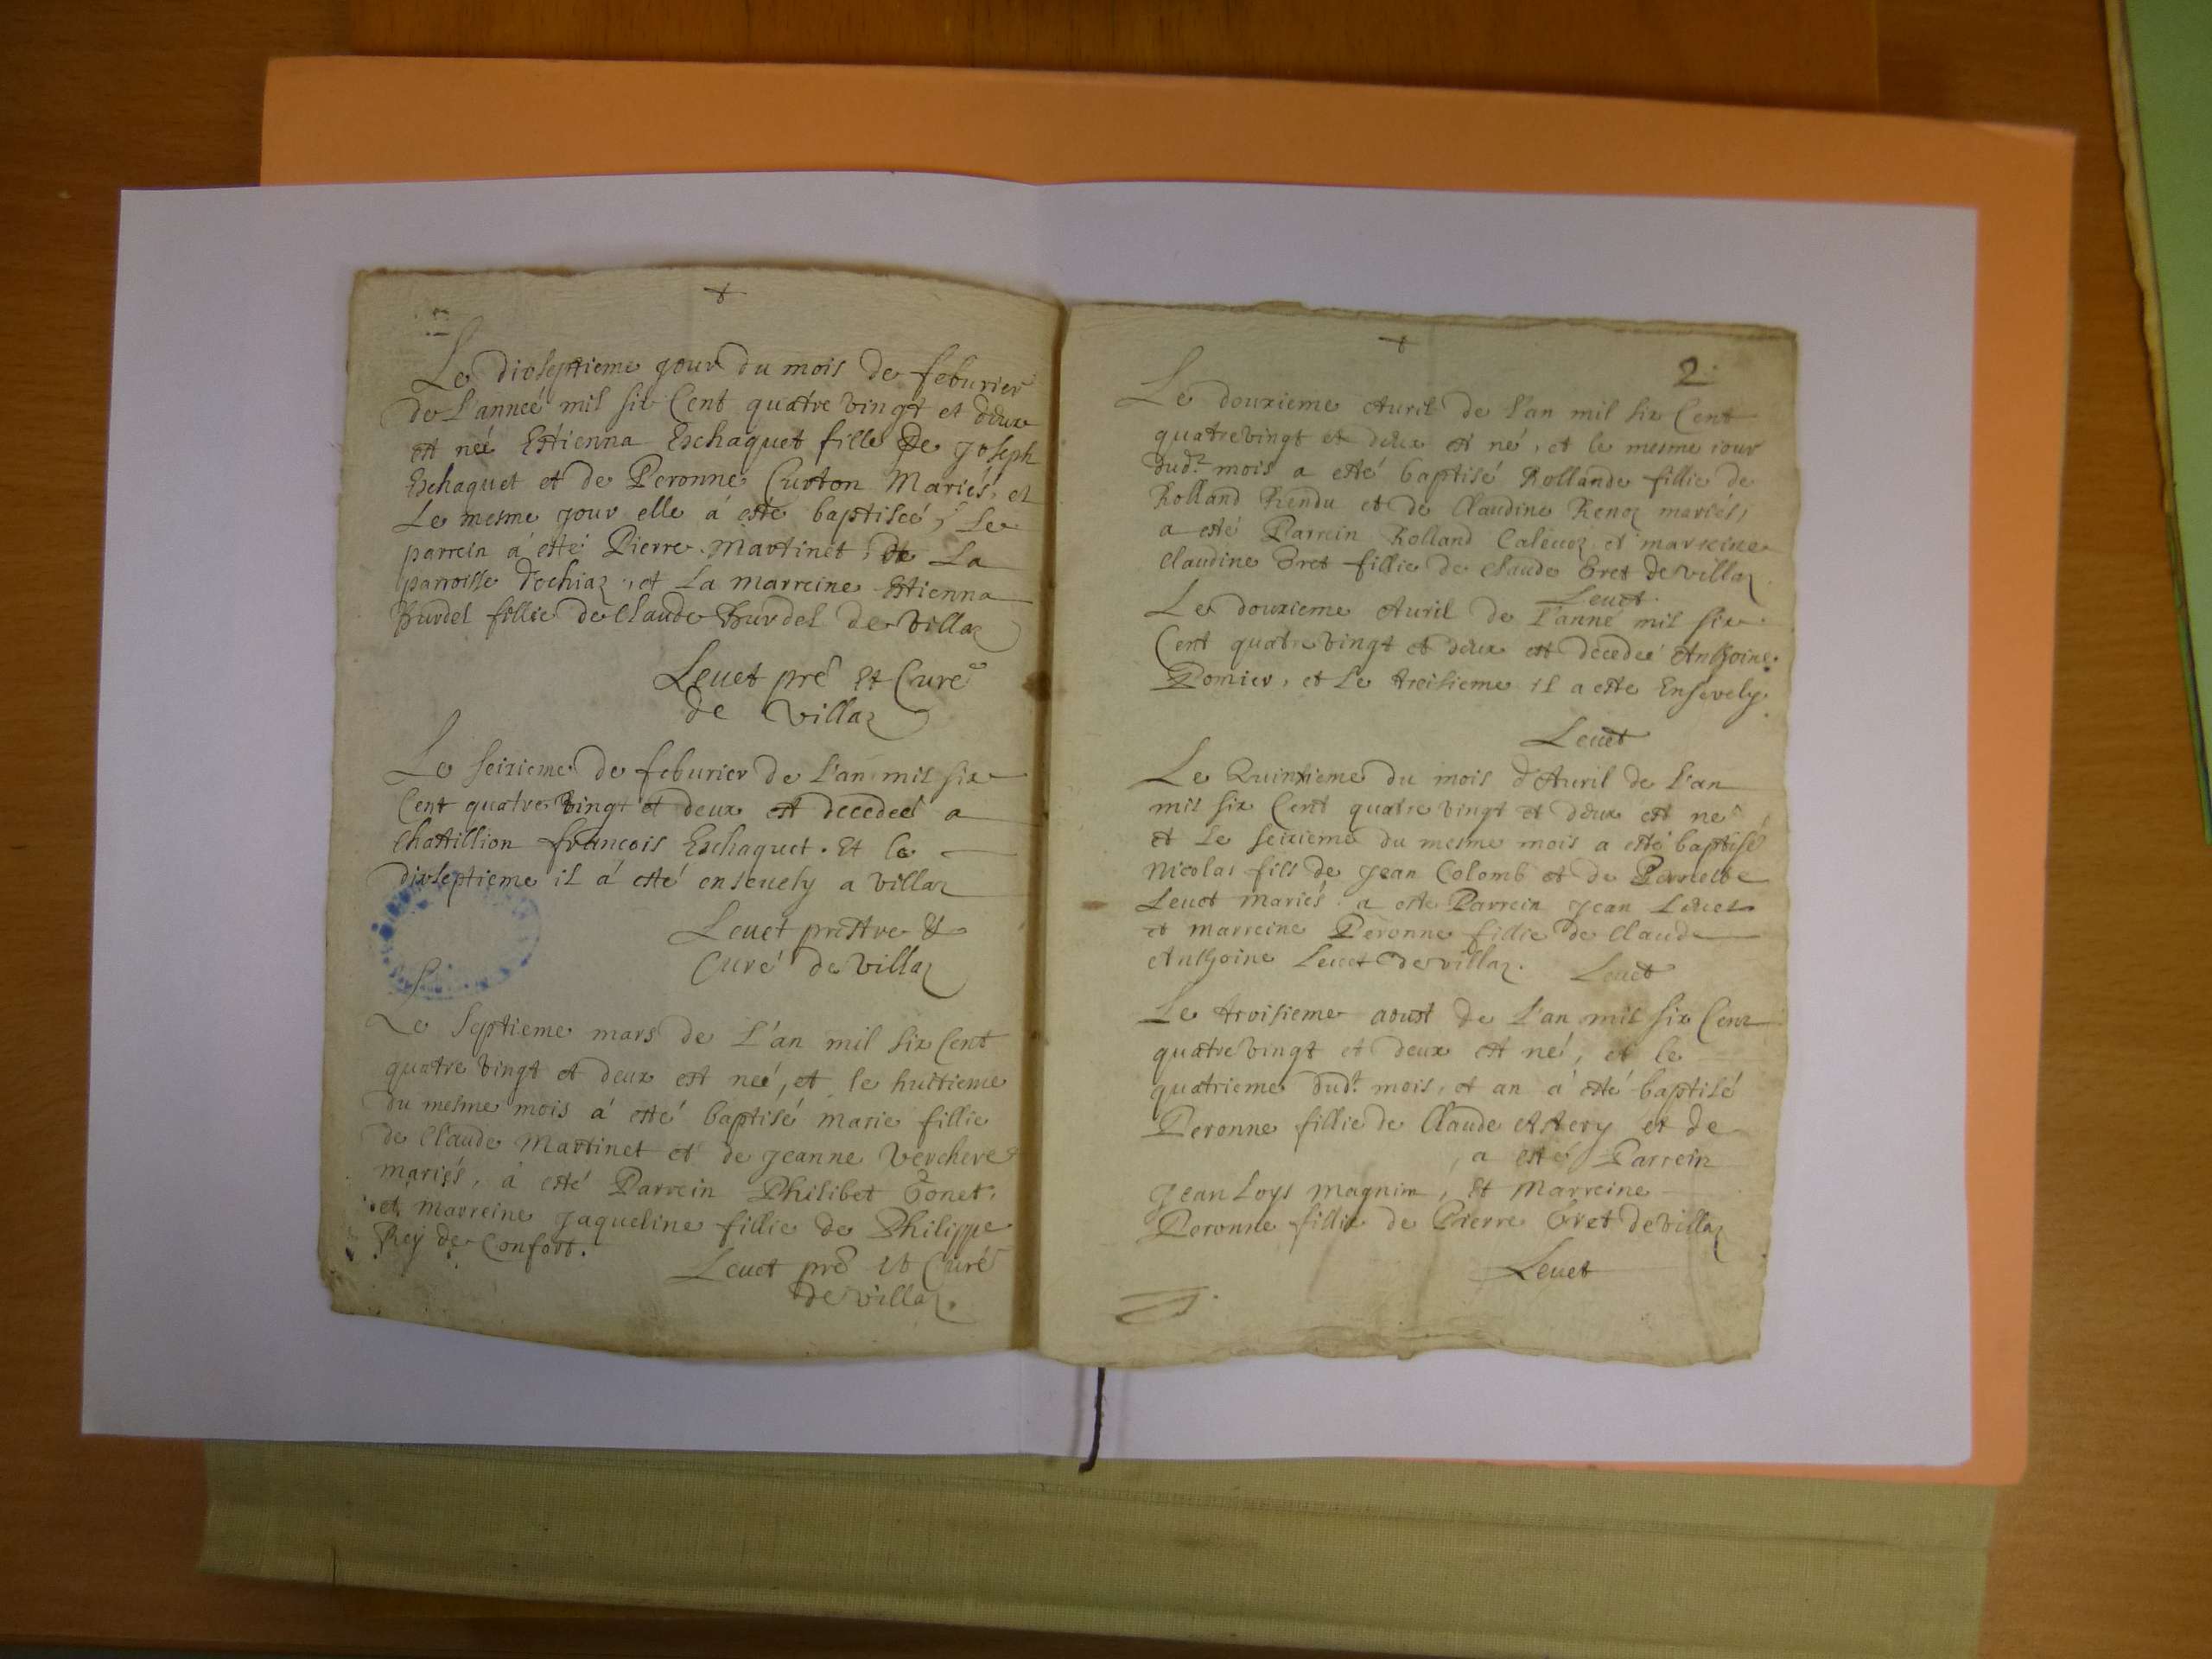 +
Le dixseptieme jour du mois de feburier
de l'anneé mil six Cent quatre vingt et deux
est neé Estienna Eschaquet fille de Joseph
Eschaquet et de Peronne Curton Mariés, et
Le mesme jour elle á esté baptiseé, Le
parrein á esté Pierre Martinet de La
parroisse d'ochiaz, et La marreine Estienna
Burdel fillie de Claude Burdel de Villaz
Leuet pre Et Curé
de Villaz
Le seizieme de feburier de l'an mil six
Cent quatre vingt et deux est decedeé a
Chastillion francois Eschaquet. Et le
dixseptieme il á esté enseuely a villaz
Leuet prestre &
Curé de Villaz
Le Septieme mars de L'án mil six Cent
quatre vingt et deux est neé, et le huitieme
du mesme mois á esté baptisé marie fillie
de Claude Martinet et de Jeanne Verchere
mariés, á esté Parrein Philibet Tonet
et marreine Jaqueline fillie de Philippe
Rey de Confort.
Leuet pre et Curé
de Villaz.
+
2.
Le douzieme Auril de l'an mil six Cent
quatre vingt et deux est né, et le mesme iour
dud.t mois a esté baptisé Rollande fillie de
Rolland Rendu et de Claudine Renoz mariés,
a esté Parrein Rolland et marreine
Claudine Bret fillie de Claude Bret de Villaz
Leuet.
Le douzieme Auril de l'anné mil six
Cent quatre vingt et deux est decedeé Anthoine
Pomier, et Le troisieme il a esté Ensevely.
Leuet
Le Quinzieme du mois d'Auril de l'an
mil six Cent quatre vingt et deux est né
et Le seizieme du mesme mois a esté baptisé
Nicolas fils de Jean Colomb et de
Leuet mariés a esté Parrein Jean Leuet
et marreine Peronne fillie de Claude
Anthoine Leuet de villaz. Leuet
Le troisieme aoust de L'an mil six Cent
quatre vingt et deux est né, et le
quatrieme dud.t mois, et an á esté baptisé
Peronne fillie de Claude et de
, a esté Parrein
Jean Loys Magnin, Et Marreine
Peronne fillie de Pierre Bret de Villaz
Leuet